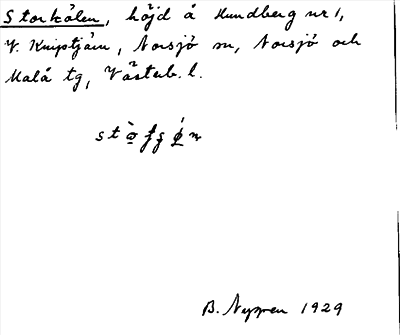 Storkålen, höjd å Hundberg nr 1,
V. Knipstjärn, Norsjö sn, Norsjö och
Malå tg, Västerb. l.
B. Nygren 1929